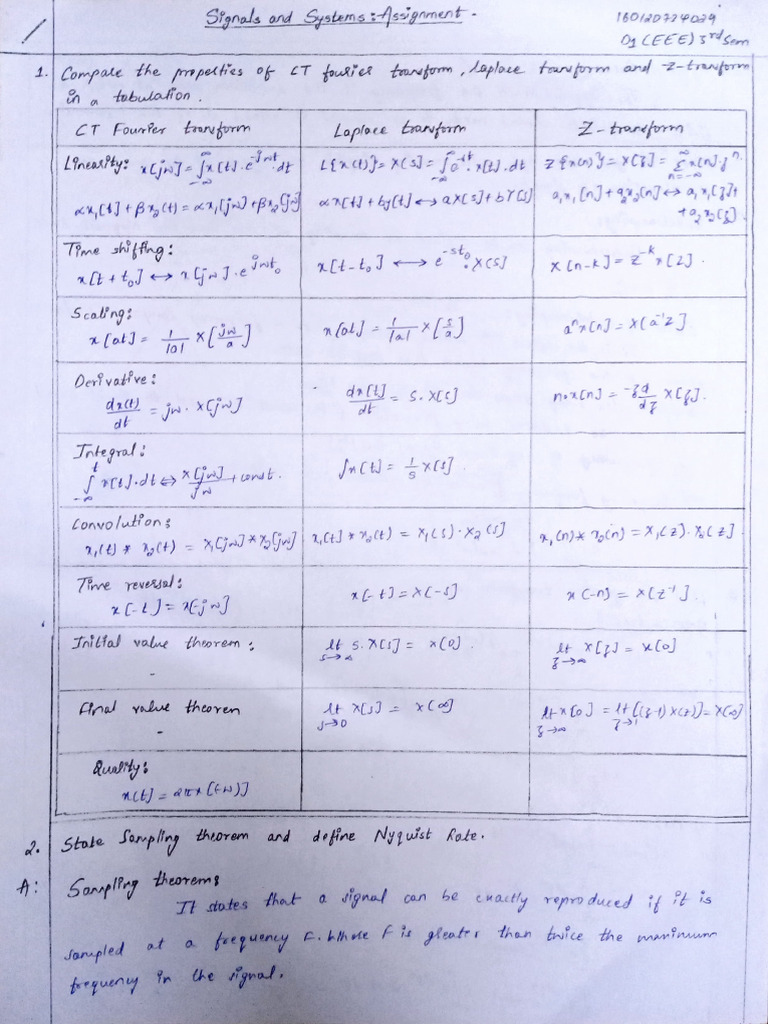 Signals and Systems: Assignment.
160120734029
D1 (EEE) 3rd Sem
1. Compare the properties of CT fourier transform, laplace transform and Z-transform
in a tabulation.
CT Fourier transform
Laplace transform
Z-transform
Linearity: x[jω] = ∫_{-∞}^{∞} x[t].e^{-jωt}.dt
αx₁[t]+βx₂(t) = αx₁[jω]+βx₂[jω]
L{x(t)} = X(s) = ∫_{-∞}^{∞} e^{-st}.x[t].dt
αx[t]+by[t] ↔ aX[s]+bY[s]
Z{x(n)} = X[z] = Σ_{n=-∞}^{∞} x[n].z^{n}.
a₁x₁[n]+a₂x₂[n] ↔ a₁x₁[z]+
+a₂x₂[z].
Time shifting:
x[t+t₀] ↔ x[jω].e^{jωt₀}
x[t-t₀] ↔ e^{-st₀}.X[s]
x[n-k] = z^{-k}x[z].
Scaling:
x[at] = 1/|a| X[jω/a]
x[at] = 1/|a| X[s/a]
aⁿx[n] = X[a⁻¹z].
Derivative:
dx(t)/dt = jω. X[jω]
dx[t]/dt = s. X[s]
n.x[n] = -zd/dz X[z].
Integral:
∫_{-∞}^{t} x[t].dt ⇔ x[jω]/jω + const.
∫x[t] = 1/s X[s].
Convolution:
x₁(t) * x₂(t) = X₁[jω] * X₂[jω]
x₁[t] * x₂(t) = X₁(s).X₂(s]
x₁(n) * x₂(n) = X₁(z).x₂(z].
Time reversal:
x[-t] = x[-jω]
x[-t] = X[-s]
x(-n) = X[z⁻¹].
Initial value theorem:
-
lt s→∞ s.X[s] = x(0).
lt z→∞ X[z] = x[0]
Final value theorem
-
lt s→0 X[s] = x(∞]
lt z→∞ x[0] = lt z→1 [(z-1)X(z)] = X(∞)
Quality:
x[t] = 2πx[(-ω)]
2. State Sampling theorem and define Nyquist Rate.
A: Sampling theorem:
It states that a signal can be exactly reproduced if it is
sampled at a frequency F. Where F is greater than twice the maximum
frequency in the signal.